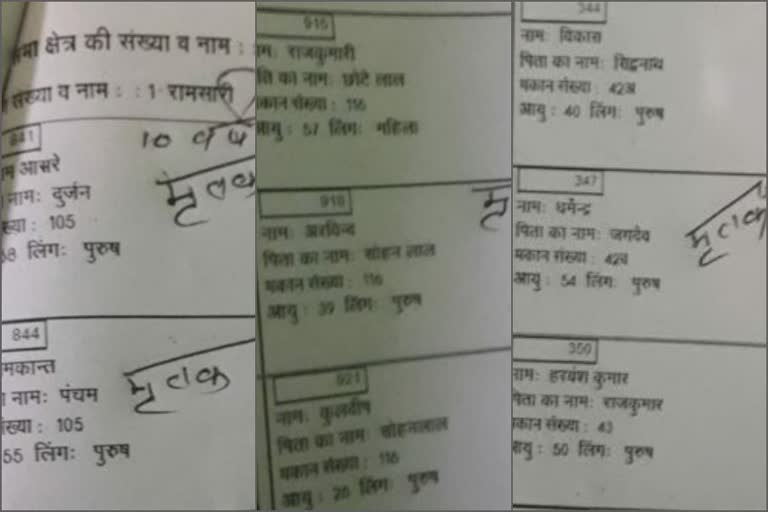 क्षेत्र की संख्या व नाम :
संख्या व नाम : : 1 रामसारी
10 वर्ष
841
म आसरे
नाम: दुर्जन
ख्या : 105
68 लिंग: पुरुष
मृतक
844
मकान्त
नाम: पंचम
ंख्या : 105
55 लिंग: पुरुष
मृतक
915
ाम: राजकुमारी
ति का नाम: छोटे लाल
कान संख्या : 116
आयु : 57 लिंग: महिला
918
नाम: अरविन्द
पिता का नाम: सोहन लाल
मकान संख्या : 116
आयु : 39 लिंग: पुरुष
मृ
921
नाम: कुलदीप
पिता का नाम: सोहनलाल
मकान संख्या : 116
आयु : 26 लिंग: पुरुष
344
नाम: विकास
पिता का नाम: सिद्धनाथ
मकान संख्या : 42अ
आयु : 40 लिंग: पुरुष
347
नाम: धर्मेन्द्र
पिता का नाम: जगदेव
मकान संख्या : 42ब
आयु : 54 लिंग: पुरुष
मृतक
350
नाम: हरवंश कुमार
पिता का नाम: राजकुमार
मकान संख्या : 43
आयु : 50 लिंग: पुरुष